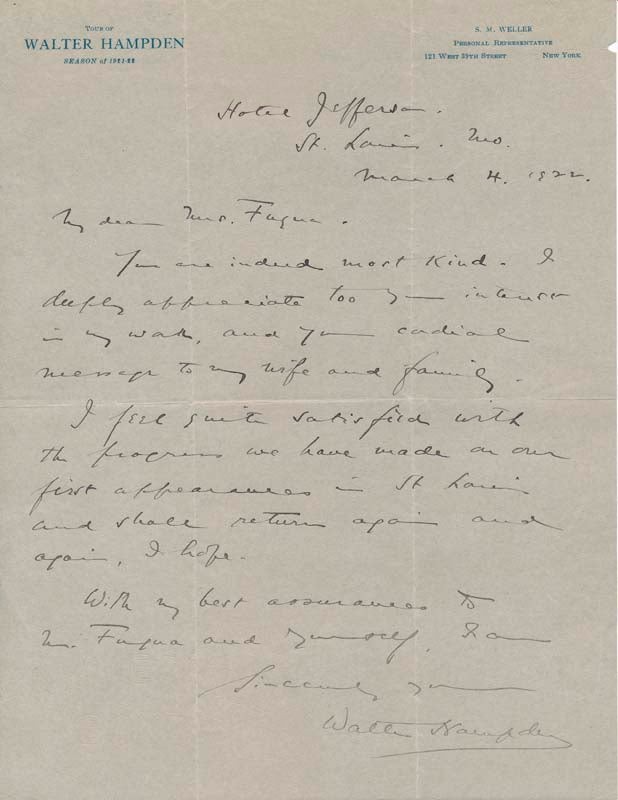 TOUR OF
WALTER HAMPDEN
SEASON of 1921-22
S. M. WELLER
PERSONAL REPRESENTATIVE
121 WEST 39TH STREET NEW YORK
Hotel Jefferson.
St. Louis. Mo.
March 4. 1922.
My dear Mrs. Fuqua.
You are indeed most kind. I
deeply appreciate too your interest
in my work, and your cordial
message to my wife and family.
I feel quite satisfied with
the progress we have made on our
first appearances in St Louis
and shall return again and
again, I hope.
With my best assurances to
Mr. Fuqua and yourself, I am
Sincerely yours
Walter Hampden